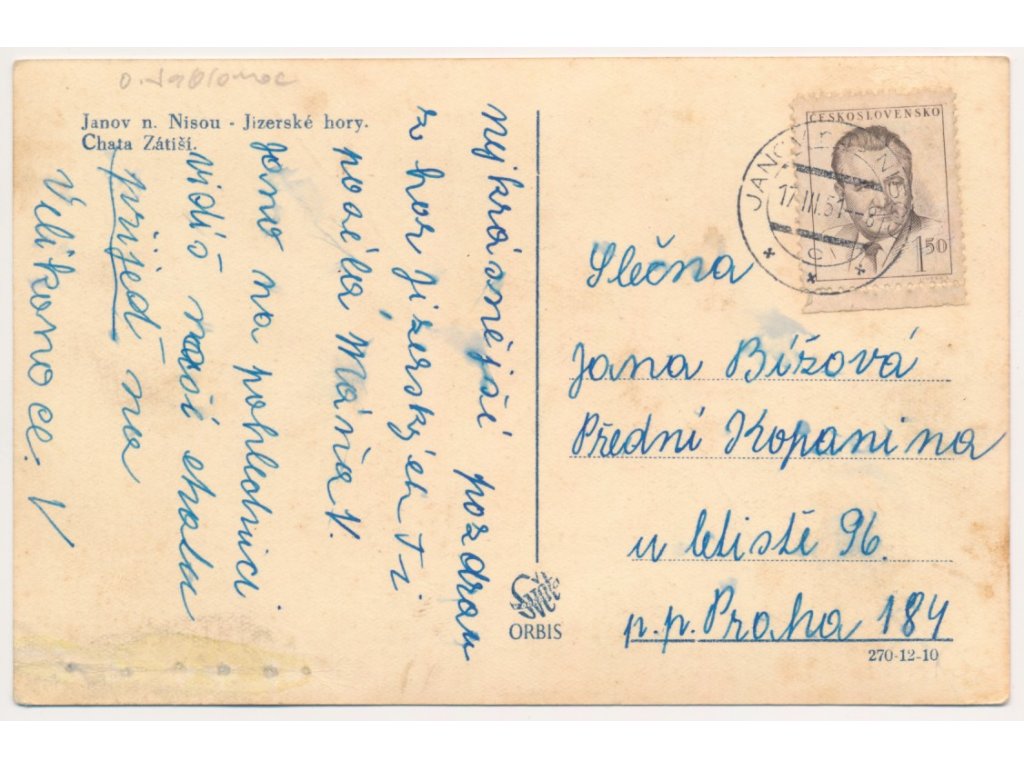 o. Jablonec
Janov n. Nisou - Jizerské hory.
Chata Zátiší.
Nejkrásnější pozdrav
z hor jizerských Ti
posílá Máňa V.
Jano na pohlednici
vidíš naší chatu
přijeď na
Velikonoce. V
ORBIS
ČESKOSLOVENSKO
1 50
JANOV N. NISOU
17. III. 51
Slečna
Jana Bížová
Přední Kopanina
u letiště 96.
p.p. Praha 184
270-12-10